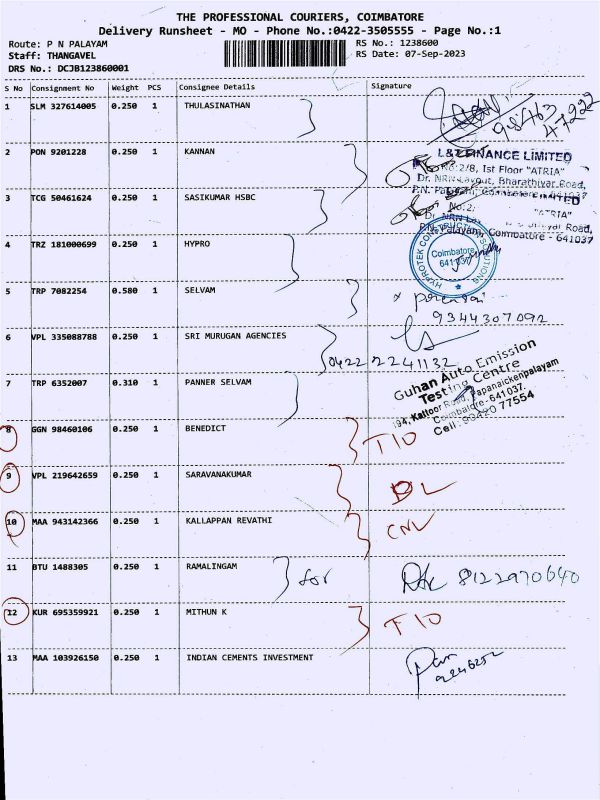 THE PROFESSIONAL COURIERS, COIMBATORE
Delivery Runsheet - MO - Phone No.:0422-3505555 - Page No.:1
Route: P N PALAYAM
Staff: THANGAVEL
DRS No.: DCJB123860001
RS No.: 1238600
RS Date: 07-Sep-2023
S No Consignment No Weight PCS Consignee Details Signature
1 SLM 327614005 0.250 1 THULASINATHAN
98463
47222
2 PON 9201228 0.250 1 KANNAN
L&T FINANCE LIMITED
No:2/8, Ist Floor "ATRIA"
Dr. NRN Layout, Bharathiyar Road,
P.N. Palayam, Coimbatore - 641037
3 TCG 50461624 0.250 1 SASIKUMAR HSBC
LIMITED
No.2/ "ATRIA"
Dr. NRN Road,
P.N. Palayam, Coimbatore - 641037
4 TRZ 181000699 0.250 1 HYPRO
HYPROTEK CONSTRUCTION SOLUTIONS
Coimbatore
641 037
5 TRP 7082254 0.580 1 SELVAM
9344307092
6 VPL 335088788 0.250 1 SRI MURUGAN AGENCIES
0422 2241132
7 TRP 6352007 0.310 1 PANNER SELVAM
Guhan Auto Emission
Testing Centre
194, Kattoor Road, Papanaickenpalayam
Coimbatore - 641 037.
Cell: 98420 77554
8 GGN 98460106 0.250 1 BENEDICT
TIO
9 VPL 219642659 0.250 1 SARAVANAKUMAR
DL
10 MAA 943142366 0.250 1 KALLAPPAN REVATHI
CNL
11 BTU 1488305 0.250 1 RAMALINGAM for 8122970640
12 KUR 695359921 0.250 1 MITHUN K
TIO
13 MAA 103926150 0.250 1 INDIAN CEMENTS INVESTMENT
2246252